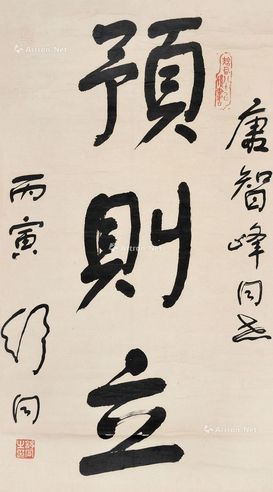 唐智峰同志
預則立
丙寅
舒同
Artron.Net
Artron.Net
Artron.Net
Artron.Net